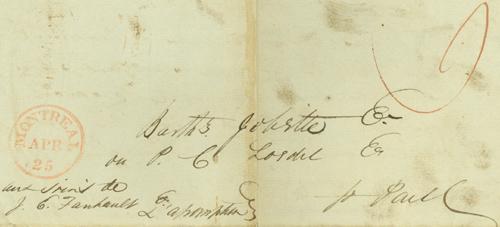 MONTREAL
APR
25
Barth. Joliette Er
ou P. C. Loedel Er
aux soins de
J. C. Fanhault Er L'assomption
St Paul